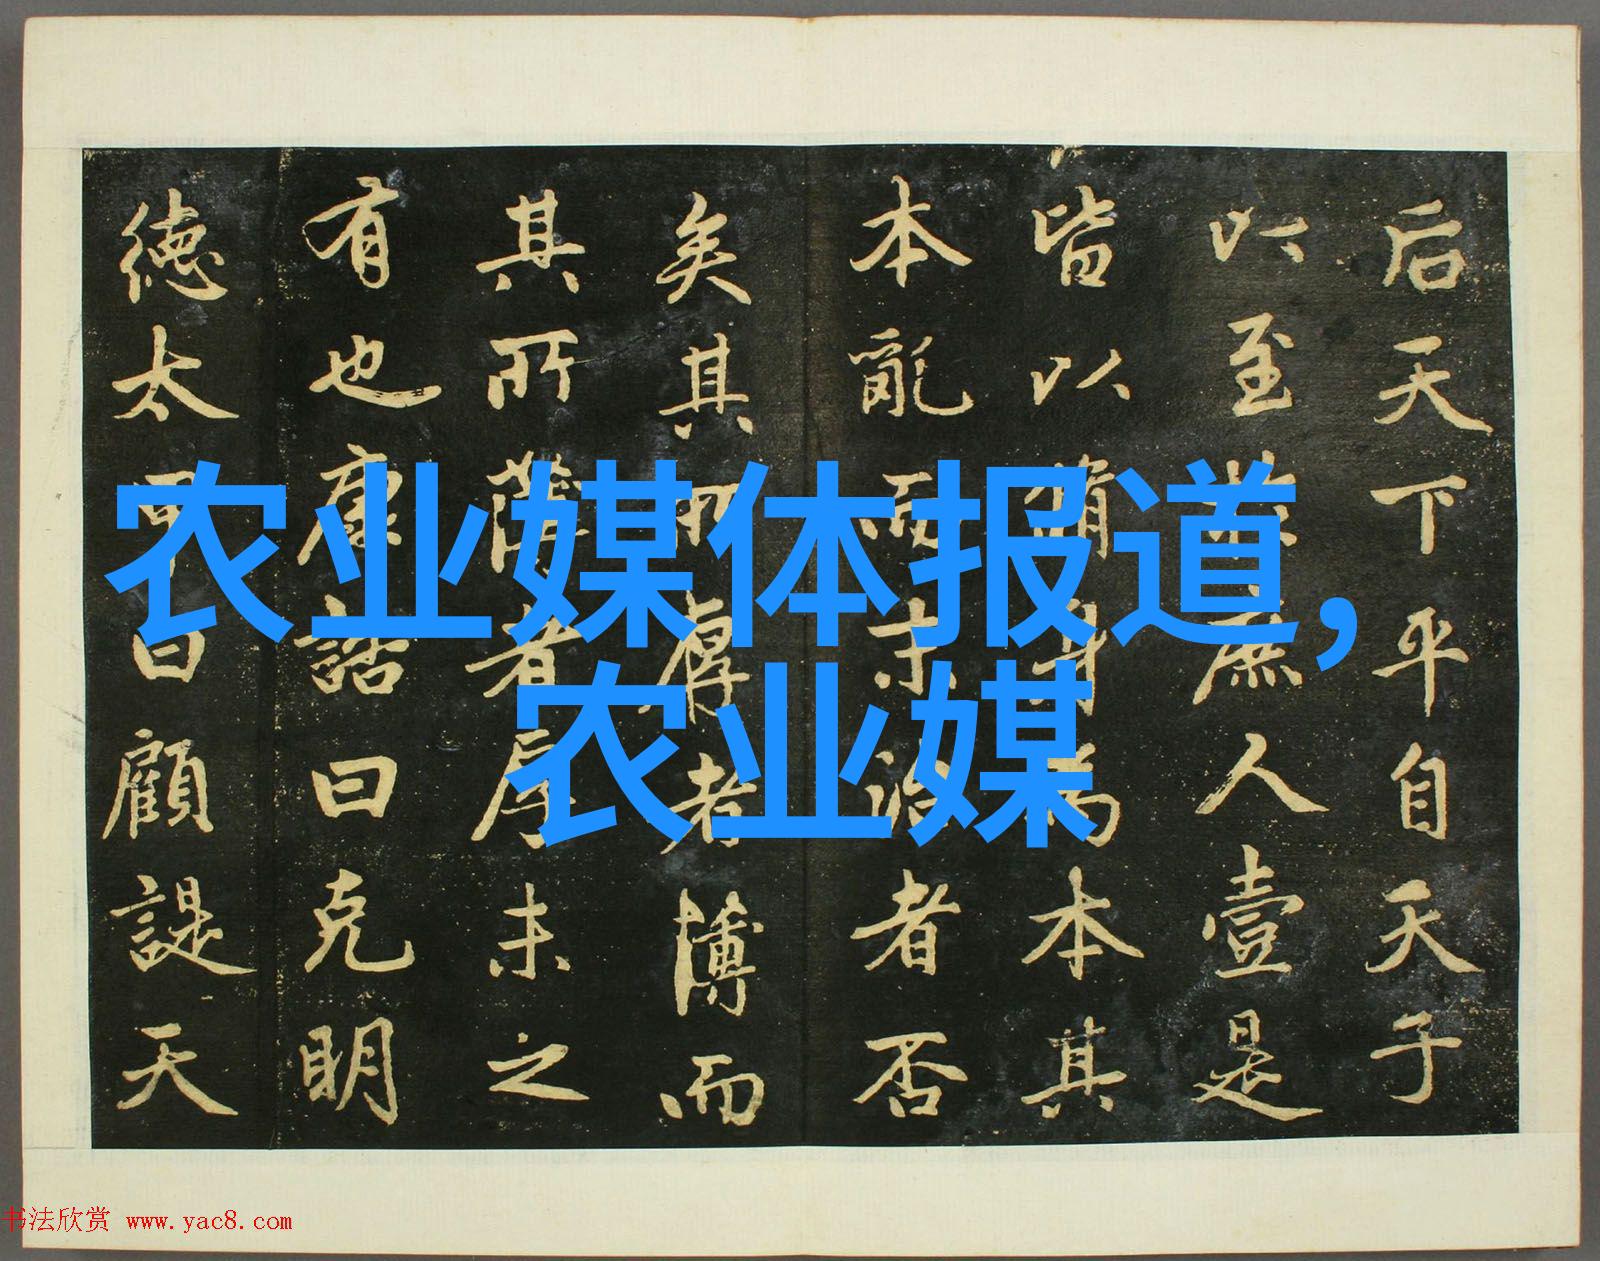 后天下平自天子
以至庶人壹是
皆以脩身為本其
本亂而末治者否
矣其所厚者薄而
其所薄者厚未之
有也康誥曰克明
德太甲曰顧諟天
农业媒体报道,
农业媒
书法欣赏 www.yac8.com